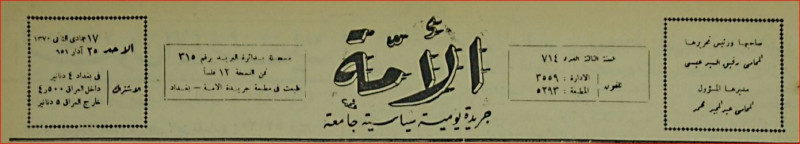 صاحبها ورئيس تحريرها
المحامي رفيق السيد عيسى
مديرها المسؤول
المحامي عبد المجيد محمد
السنة الثالثة العدد ٧١٤
تلفون
الادارة : ٣٥٥٩
المطبعة : ٥٢٩٣
الأمة
جريدة يومية سياسية جامعة
مسجلة بدائرة البريد برقم ٣١٥
ثمن النسخة ١٢ فلسا
طبعت في مطبعة جريدة الامة - بغداد
الاحد
١٧ جمادي الثاني ١٣٧٠
٢٥ آذار ٩٥١
الاشتراك
في بغداد ٤ دنانير
داخل العراق ٤٫٥٠٠
خارج العراق ٥ دنانير